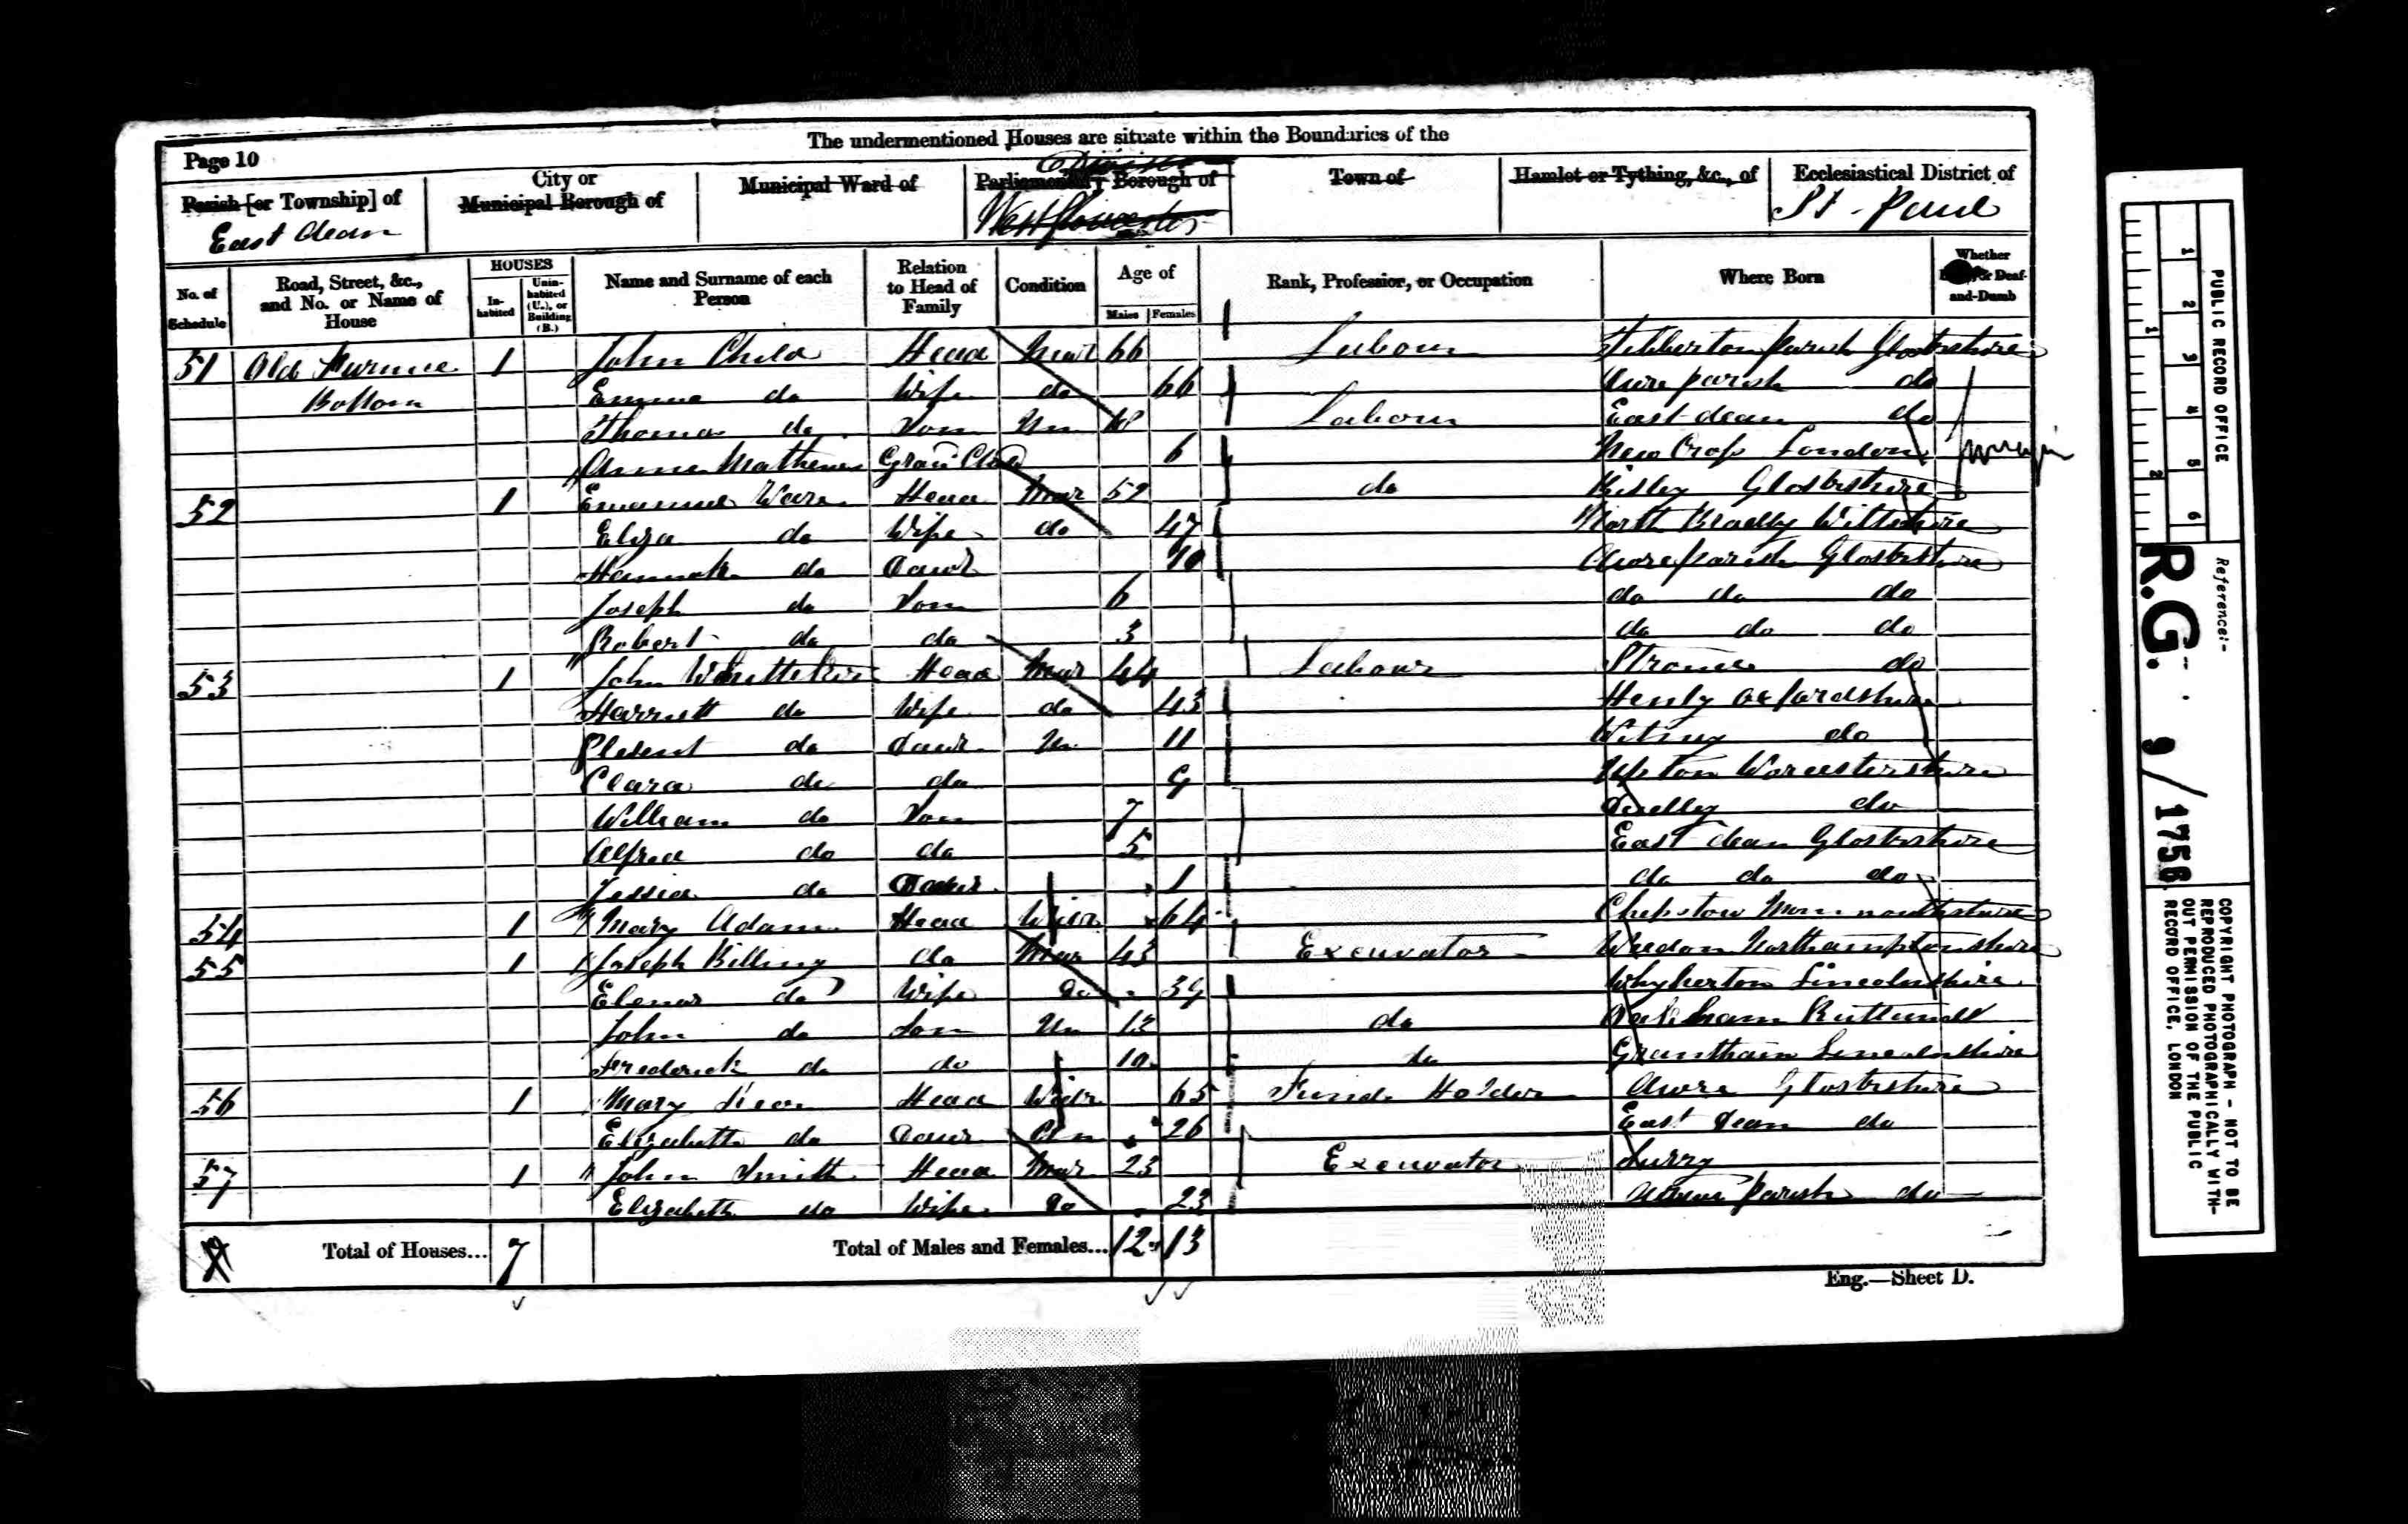 The undermentioned Houses are situate within the Boundaries of the
Page 10
Parish [or Township] of
East dean
City or Municipal Borough of
Municipal Ward of
Parliamentary Borough of
Town of
Hamlet or Tything, &c., of
Ecclesiastical District of
St. Paul
No. of Schedule
Road, Street, &c., and No. or Name of House
HOUSES
In-habited
Unin-habited (U.), or Building (B.)
Name and Surname of each Person
Relation to Head of Family
Condition
Age of
Males
Females
Rank, Profession, or Occupation
Where Born
Whether or Deaf-and-Dumb
51 Old Furnace 1 John Child Head Mar 66 Labour Tibberton parish Glosbrshire
Bottom Emma do Wife do 66 Awre parish do
Thomas do Son Un 18 Labour East dean do
Anne Mathews Gran Child 6 New Crofs London
52 1 Emanuel Head Mar 52 do Bisley Glosbrshire
Eliza do Wife do 47 North Bradly Wiltshire
Hannah do Daur 10 Awre parish Glosbrshire
Joseph do Son 6 do do do
Robert do do 3 do do do
53 1 John Head Mar 44 Labour Stroud do
Harriett do Wife do 43 Henly oxfordshire
do Daur Un 11 Witney do
Clara do do 9 Upton Worcestershire
William do Son 7 Dudley do
Alfred do do 5 East dean Glosbrshire
Jessia do Daur 1 do do do
54 1 Mary Adams Head Widow 64 Chepstow Monmouthshire
55 1 Joseph Billing do Mar 43 Excavator Weedon Northamptonshire
Elenor do Wife do 39 Whyberton Lincolnshire
John do Son Un 13 do Oakham Rutland
Frederick do do 10 do Grantham Lincolnshire
56 1 Mary Head Widr 65 Fund Holder Awre Glosbrshire
Elizabeth do Daur Un 26 East Dean do
57 1 John Smith Head Mar 23 Excavator Surry
Elizabeth do Wife do 23 parish do
Total of Houses... 7
Total of Males and Females... 12 13
Eng.—Sheet D.
PUBLIC RECORD OFFICE
1 2 3 4 5 6
1 2
Reference:-
R.G. 9/1756
COPYRIGHT PHOTOGRAPH - NOT TO BE REPRODUCED PHOTOGRAPHICALLY WITH-OUT PERMISSION OF THE PUBLIC RECORD OFFICE, LONDON